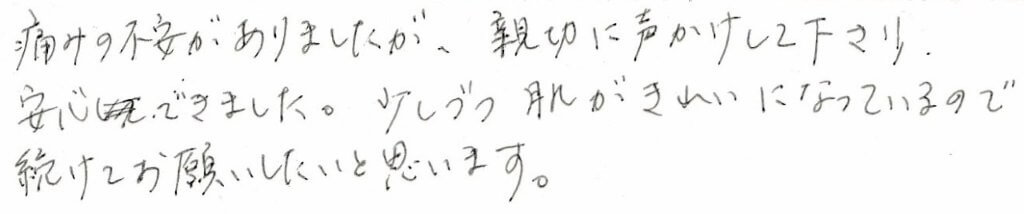 痛みの不安がありましたが、親切に声かけして下さり、
安心できました。少しづつ肌がきれいになっているので
続けてお願いしたいと思います。